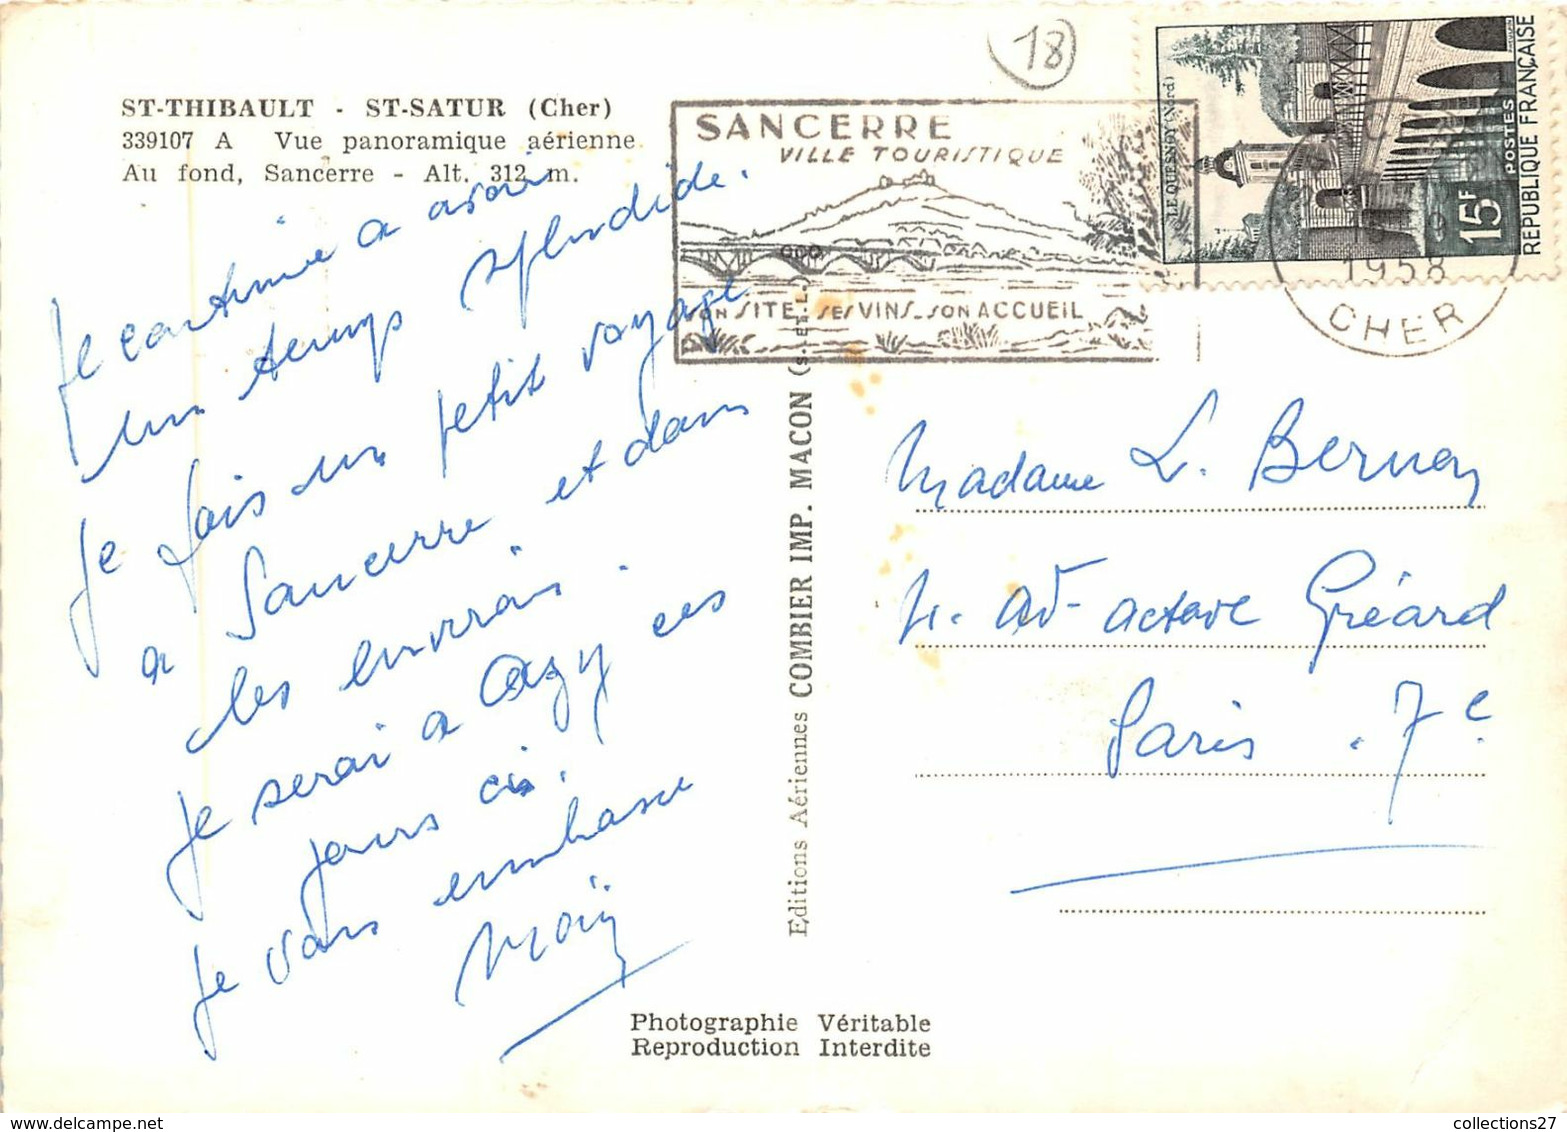 18
ST-THIBAULT - ST-SATUR (Cher)
339107 A Vue panoramique aérienne
Au fond, Sancerre - Alt. 312 m.
SANCERRE
VILLE TOURISTIQUE
SON SITE - SES VINS - SON ACCUEIL
LE QUESNOY (Nord)
15F
POSTES
REPUBLIQUE FRANÇAISE
1958
CHER
Je continue a avoir
un temps splendide.
Je fais un petit voyage
a Sancerre et dans
les environs.
Je serai a Azy ces
jours ci.
Je vous embrasse
Editions Aériennes COMBIER IMP. MACON (S.-ET-L.)
Madame L.
Av- Octave Gréard
Paris. 7e.
Photographie Véritable
Reproduction Interdite
collections27